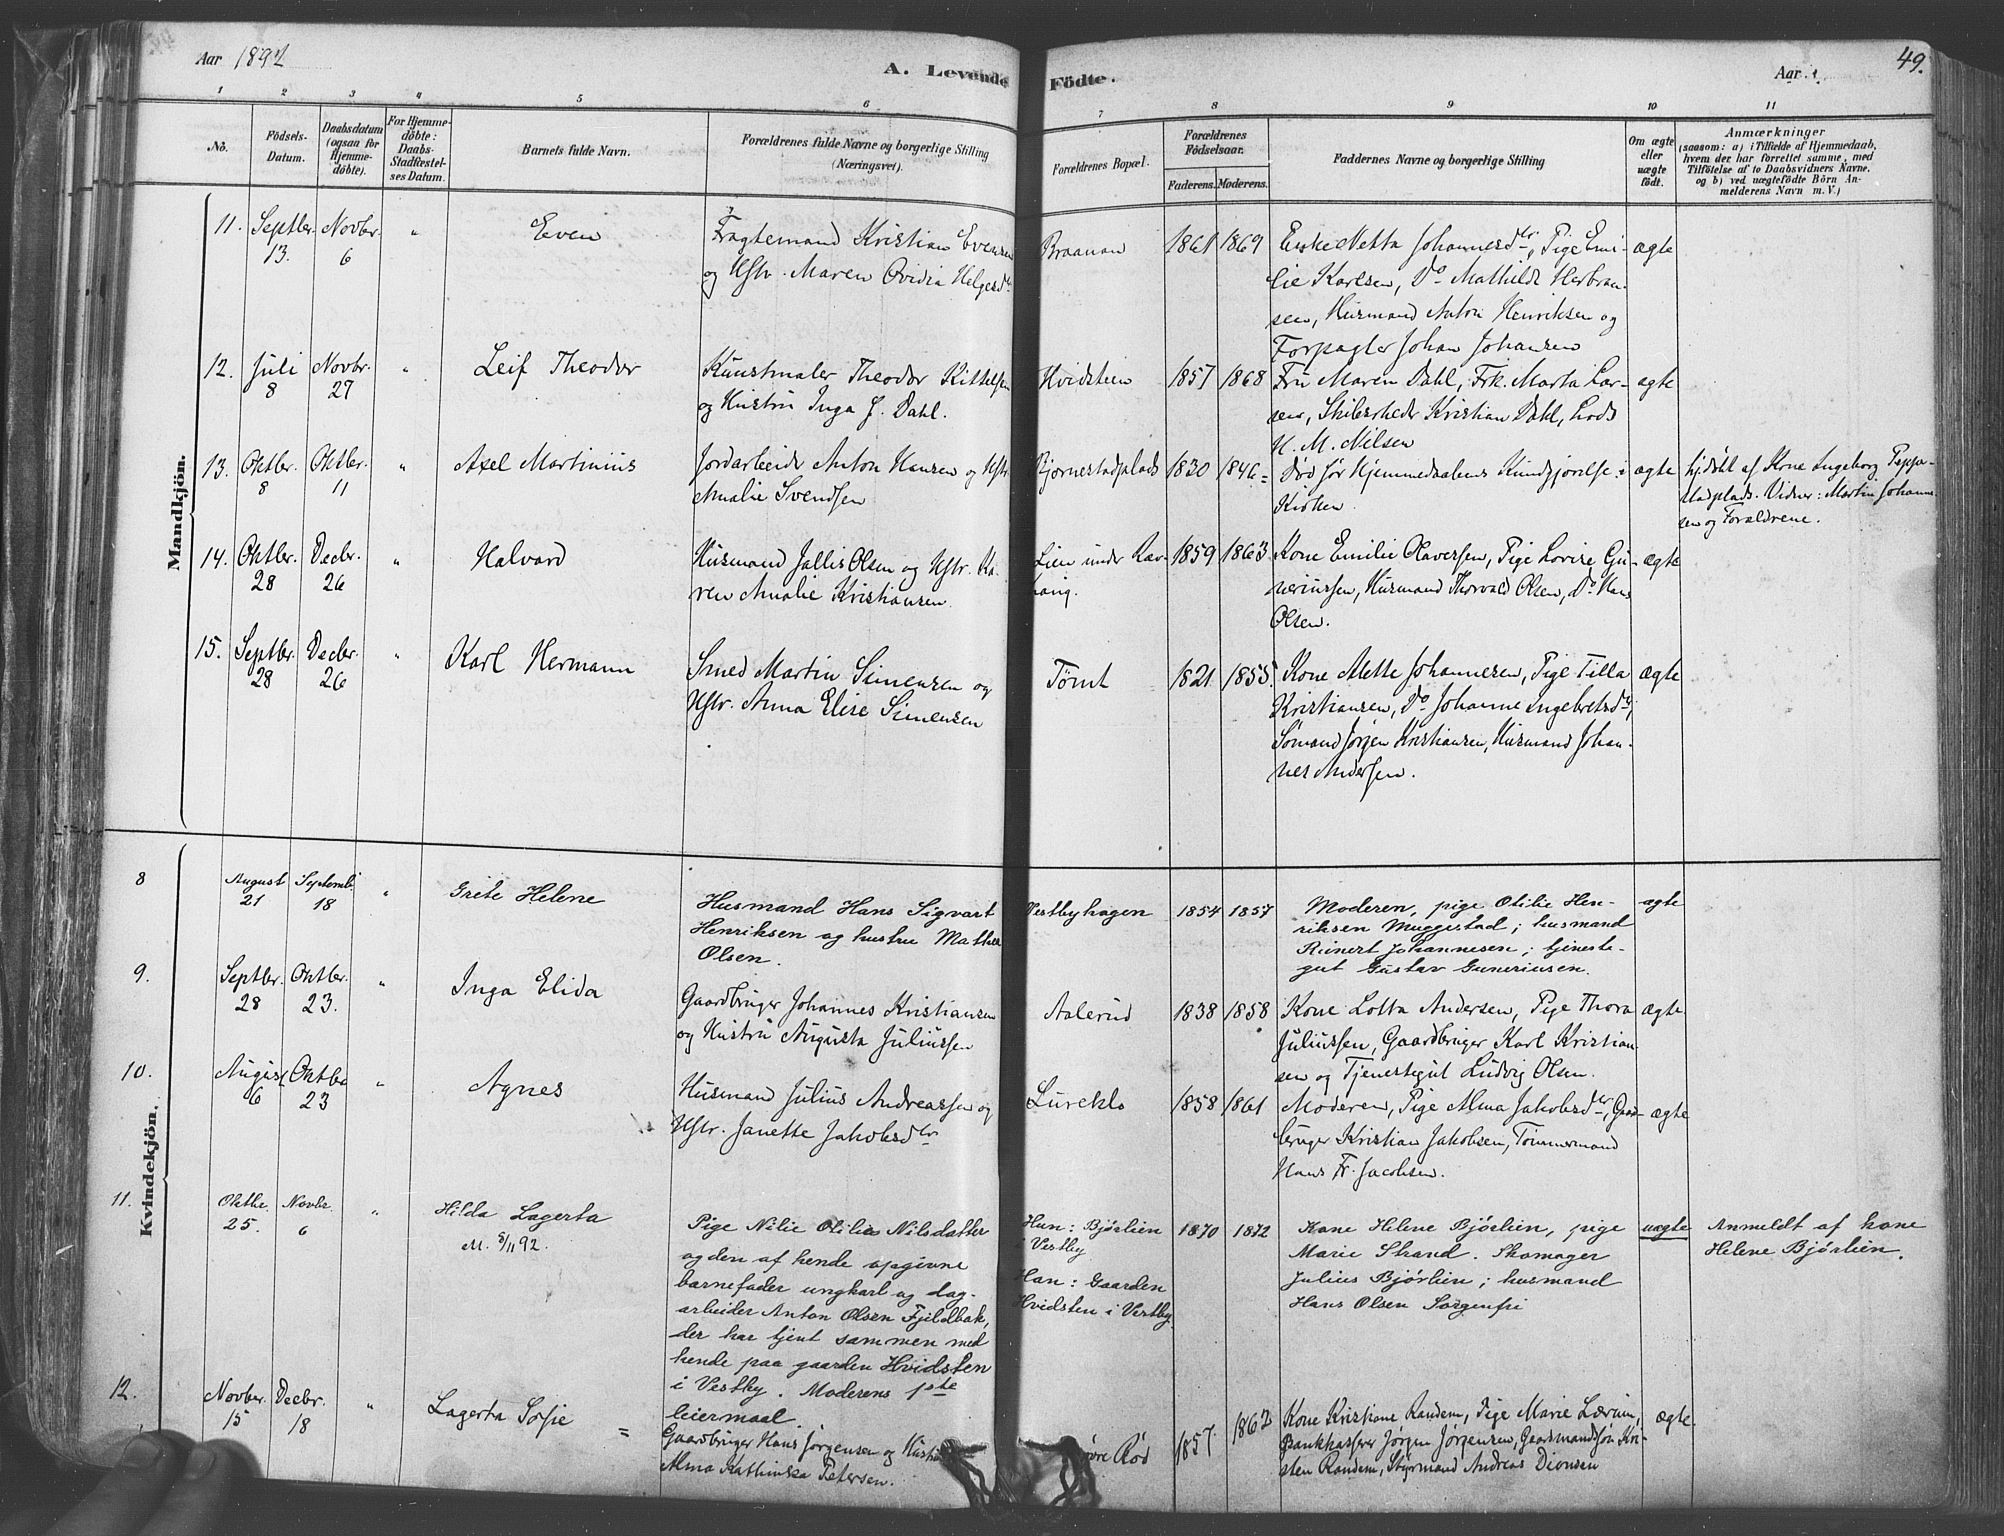 Aar 1892
A. Levende Födte.
Aar
49.
1 2 3 4 5 6 7 8 9 10 11
No.
Födsels-Datum.
Daabsdatum (ogsaa for Hjemmedöbte).
For Hjemmedöbte: Daabs-Stadfæstelses Datum.
Barnets fulde Navn.
Forældrenes fulde Navne og borgerlige Stilling (Næringsvei).
Forældrenes Bopæl.
Forældrenes Födselsaar.
Faderens. Moderens.
Faddernes Navne og borgerlige Stilling
Om ægte eller uægte födt.
Anmærkninger
(saasom: a) i Tilfælde af Hjemmedaab,
hvem der har forrettet samme, med
Tilföielse af to Daabsvidners Navne.
og b) ved uægtefödte Börn Anmelderens Navn m. V.)
Mandkjön.
11. Septbr. 13. Novbr. 6 " Even
Fragtemand Kristian Evensen
og Hstr. Maren Ovidia Helgesdtr
Braanan 1861 1869
Enke Netta Johannesdtr, Pige Emi-
lie Karlsen, Do Mathilde Herbran-
sen, Husmand Anton Henriksen og
Forpagter Johan Johansen
ægte
12. Juli 8 Novbr. 27 " Leif Theodor
Kunstmaler Theodor Kittelsen
og Hustru Inga J. Dahl.
Hvidsteen 1857 1868
Fru Maren Dahl, Frk. Marta Lar-
sen, Skibsrheder Kristian Dahl, Lods
H. M. Nilsen
ægte
13. Oktbr. 8 Oktbr. 11 " Axel Martinius
Jordarbeider Anton Hansen og Hstr.
Amalie Svendsen
Bjørnestadplads 1830 1846
Død før Hjemmedaabens Kundgjørelse i
Kirken.
ægte
hjdøbt af Kone Ingeborg Peppe-
stadplads. Vidner: Martin Johanne-
sen og Forældrene.
14. Oktbr. 28 Decbr. 26 " Halvard
Husmand Jallis Olsen og Hstr. Ka-
ren Amalie Kristiansen
Lien under Rav-
haug. 1859 1863
Kone Emilie Olaversen, Pige Lovise Gu-
neriussen, Husmand Thorvald Olsen, Do Hans
Olsen.
ægte
15. Septbr. 28 Decbr. 26 " Karl Hermann
Smed Martin Simensen og
Hstr. Anna Elise Simensen
Tømt 1821 1855.
Kone Alette Johannesen, Pige Tilla
Kristiansen, Do Johanne Ingebretsdtr,
Sømand Jørgen Kristiansen, Husmand Johan-
nes Andersen.
ægte
Kvindekjön.
8 August 21 Septemb. 18 " Grete Helene
Husmand Hans Sigvart
Henriksen og hustru Mathea
Olsen.
Vestbyhagen 1854 1857
Moderen, pige Otilie Hen-
riksen Muggestad; husmand
Reinert Johannesen; tjeneste-
gut Gustav Guneriusen.
ægte
9. Septbr. 28 Oktbr. 23. " Inga Elida
Gaardbruger Johannes Kristiansen
og Hustru Augusta Juliussen
Aalerud 1838 1858
Kone Lotta Andersen, Pige Thora
Juliussen, Gaardbruger Karl Kristian-
sen og Tjenestegut Ludvig Olsen.
ægte
10. August 6 Oktbr 23 " Agnes
Husmand Julius Andreassen og
Hstr. Janette Jakobsdtr
Lureklo 1858 1861
Moderen, Pige Alma Jakobsdtr, Gaard-
bruger Kristian Jakobsen, Tømmermand
Hans Fr. Jacobsen.
ægte
11. Oktbr 25. Novbr. 6 " Hilda Lagerta
M. 8/11 92.
Pige Nilie Otilie Nilsdatter
og den af hende opgivne
barnefader ungkarl og dag-
arbeider Anton Olsen Fjeldbak,
der har tjent sammen med
hende paa gaarden Hvidsten
i Vestby. Moderens 1ste
leiermaal.
Hun: Bjørlien
i Vestby
Han: Gaarden
Hvidsten i Vestby.
1870 1872
Kone Helene Bjørlien, pige
Marie Strand. Skomager
Julius Bjørlien; husmand
Hans Olsen Sorgenfri
uægte
Anmeldt af kone
Helene Bjørlien.
12. Novbr. 15 Decbr. 18 " Lagerta Sofie =
Gaardbruger Hans Jørgensen og Hustru
Alma Kathinka Petersen.
øvre Rød 1857 1862
Kone Kristiane Randem, Pige Marie Lærum,
Bankkasserer Jørgen Jørgensen, Gaardmandssøn Kri-
sten Randem, Styrmand Andreas Dionsen
ægte